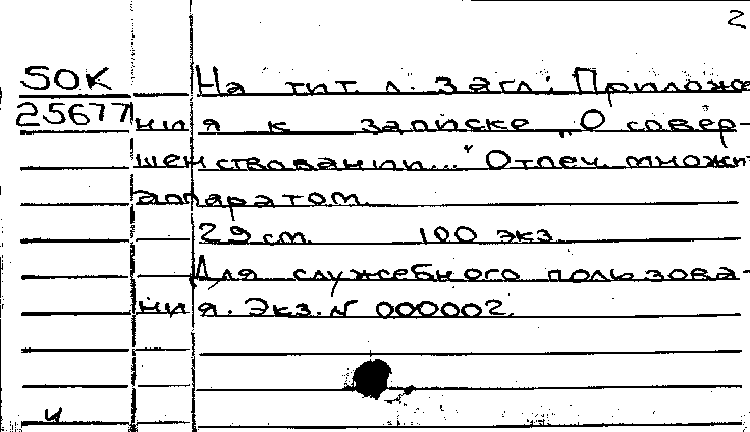 2
50К
25677
На тит. л. загл.: Приложе
ния к записке „О совер-
шенствовании..." Отпеч. множит
аппаратом.
29 см. 100 экз.
Для служебного пользова-
ния. Экз. № 000002.
и